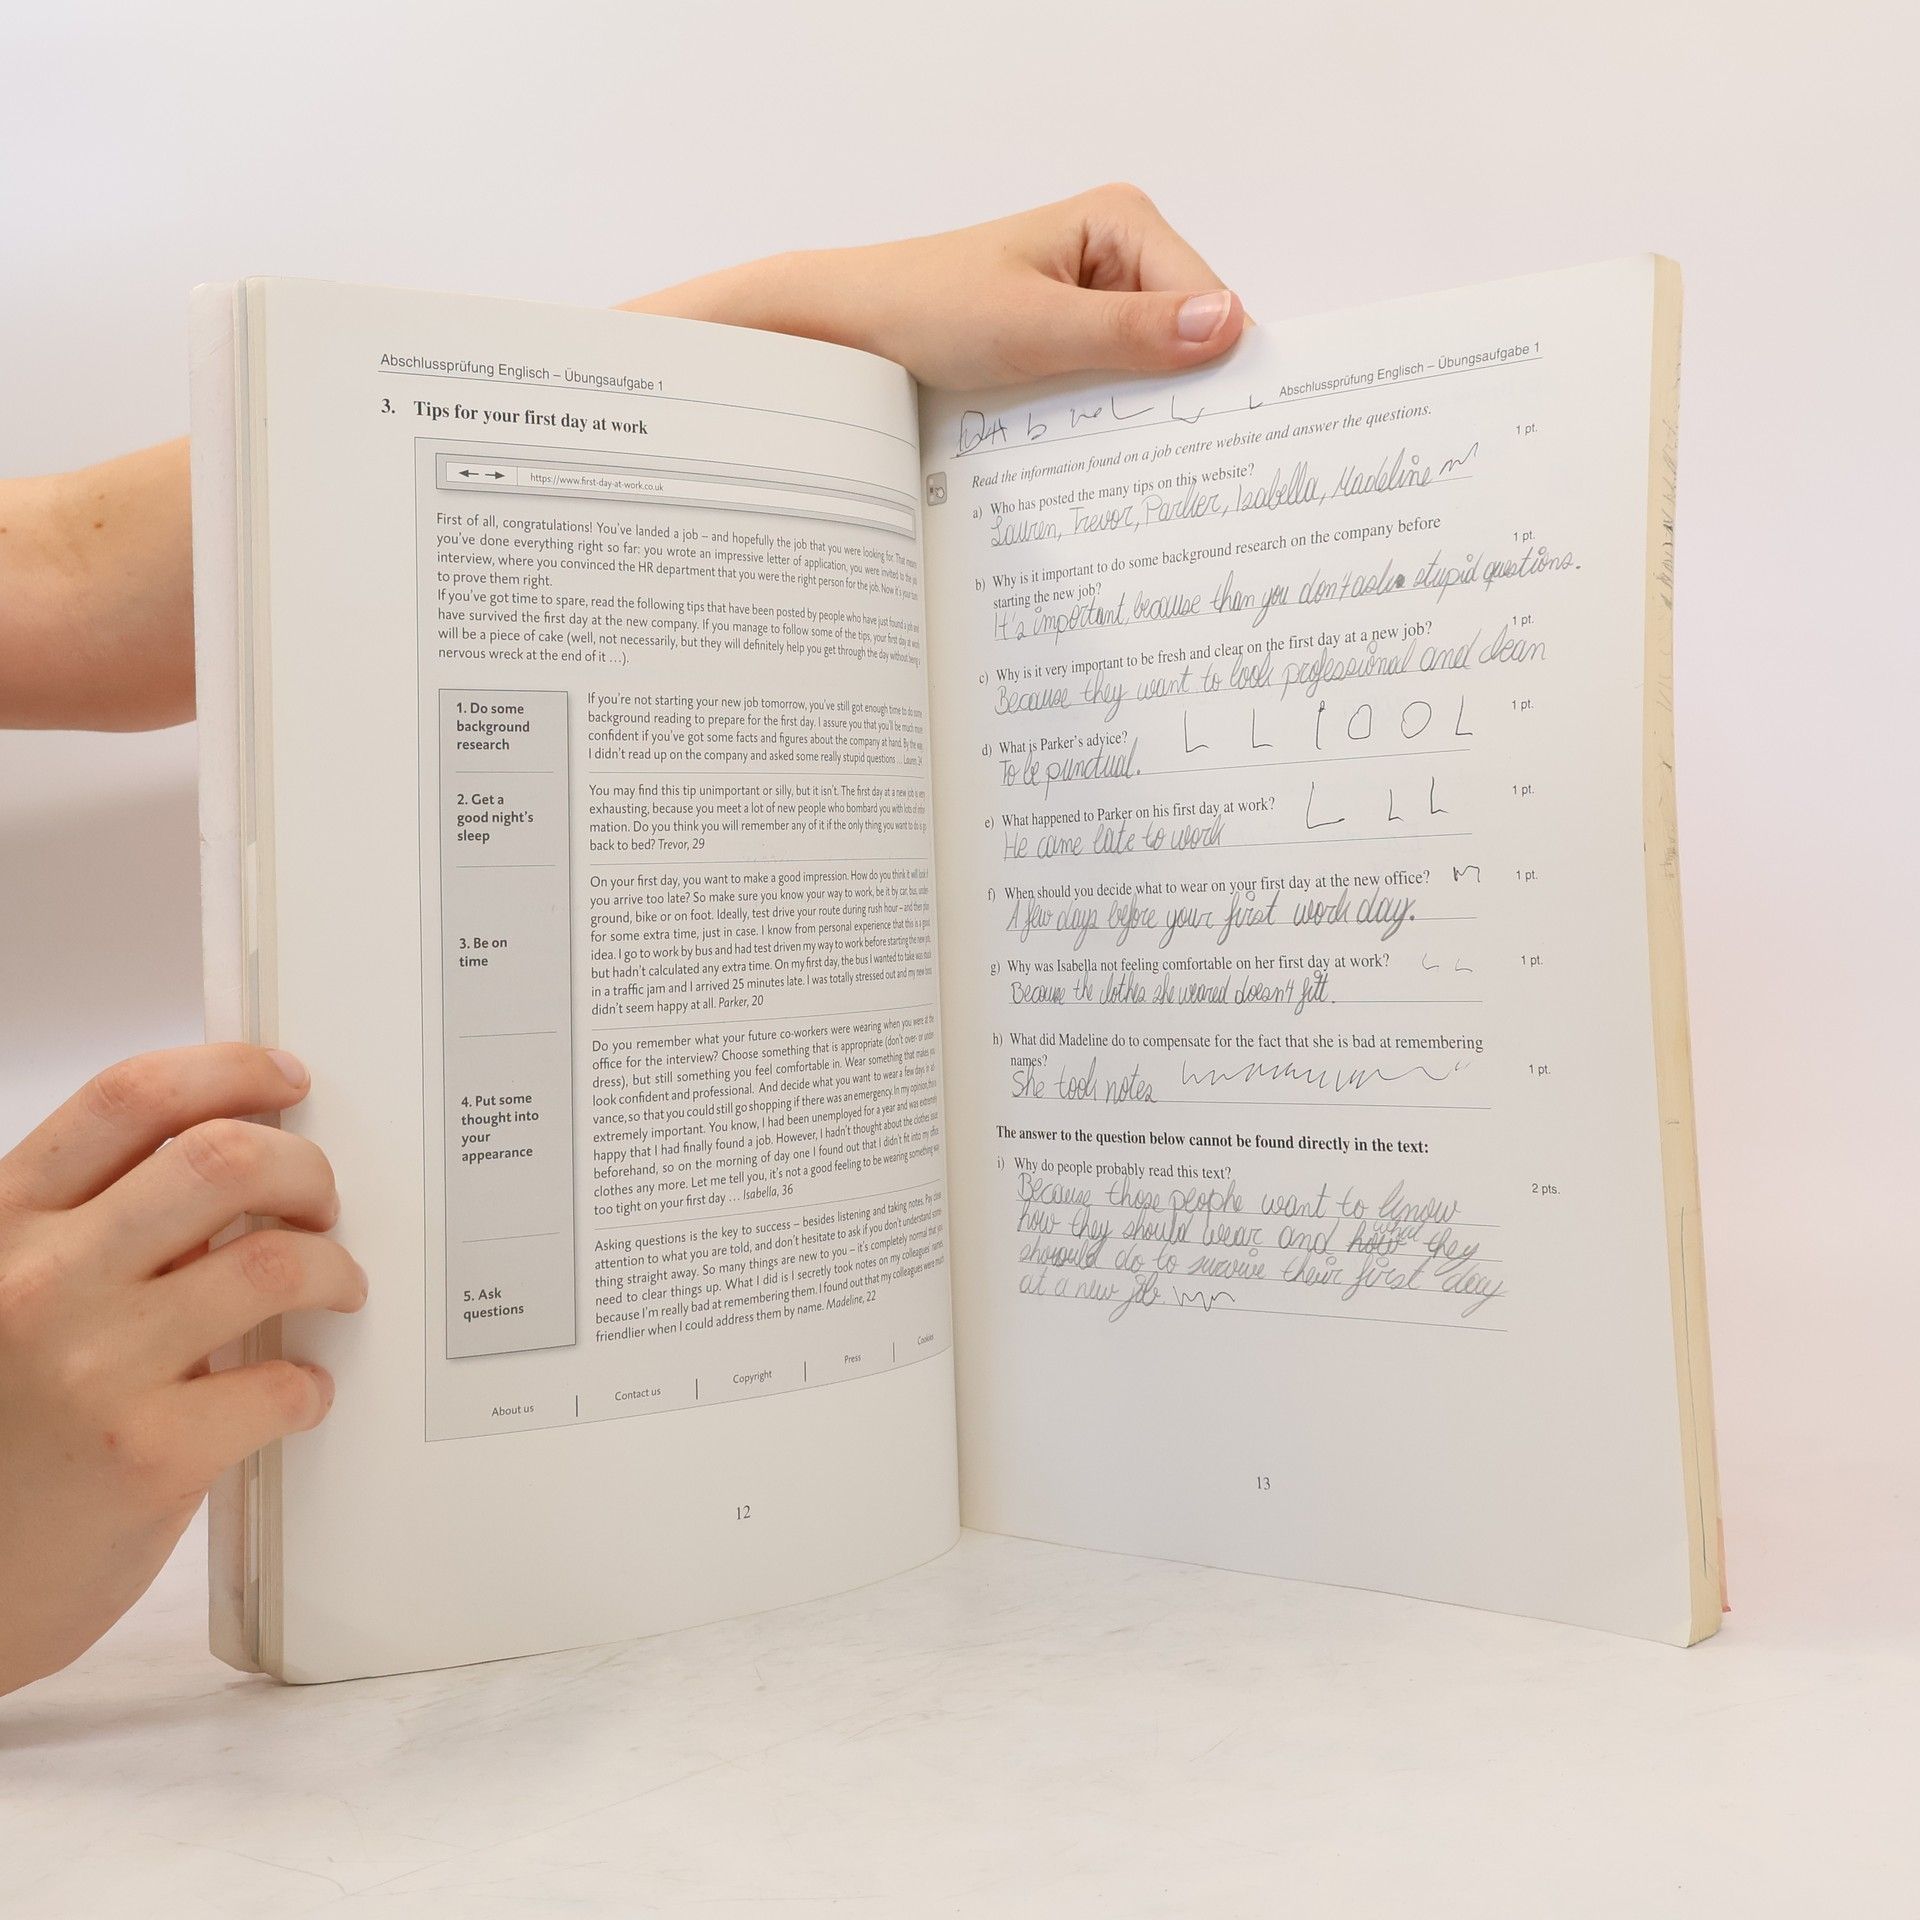 Abschlussprüfung Englisch – Übungsaufgabe 1
3. Tips for your first day at work
https://www.first-day-at-work.co.uk
First of all, congratulations! You've landed a job – and hopefully the job that you were looking for. That means
you've done everything right so far: you wrote an impressive letter of application, you were invited to the job
interview, where you convinced the HR department that you were the right person for the job. Now it's your turn
to prove them right.
If you've got time to spare, read the following tips that have been posted by people who have just found a job and
have survived the first day at the new company. If you manage to follow some of the tips, your first day at work
will be a piece of cake (well, not necessarily, but they will definitely help you get through the day without being a
nervous wreck at the end of it ...).
1. Do some
background
research
If you're not starting your new job tomorrow, you've still got enough time to do some
background reading to prepare for the first day. I assure you that you'll be much more
confident if you've got some facts and figures about the company at hand. By the way,
I didn't read up on the company and asked some really stupid questions ... Lauren,
2. Get a
good night's
sleep
You may find this tip unimportant or silly, but it isn't. The first day at a new job is very
exhausting, because you meet a lot of new people who bombard you with lots of infor-
mation. Do you think you will remember any of it if the only thing you want to do is go
back to bed? Trevor, 29
3. Be on
time
On your first day, you want to make a good impression. How do you think it will look if
you arrive too late? So make sure you know your way to work, be it by car, bus, under-
ground, bike or on foot. Ideally, test drive your route during rush hour – and then plan
for some extra time, just in case. I know from personal experience that this is a good
idea. I go to work by bus and had test driven my way to work before starting the new job,
but hadn't calculated any extra time. On my first day, the bus I wanted to take was stuck
in a traffic jam and I arrived 25 minutes late. I was totally stressed out and my new boss
didn't seem happy at all. Parker, 20
4. Put some
thought into
your
appearance
Do you remember what your future co-workers were wearing when you were at the
office for the interview? Choose something that is appropriate (don't over- or under-
dress), but still something you feel comfortable in. Wear something that makes you
look confident and professional. And decide what you want to wear a few days in ad-
vance, so that you could still go shopping if there was an emergency. In my opinion, this is
extremely important. You know, I had been unemployed for a year and was extremely
happy that I had finally found a job. However, I hadn't thought about the clothes issue
beforehand, so on the morning of day one I found out that I didn't fit into my office
clothes any more. Let me tell you, it's not a good feeling to be wearing something way
too tight on your first day ... Isabella, 36
5. Ask
questions
Asking questions is the key to success – besides listening and taking notes. Pay close
attention to what you are told, and don't hesitate to ask if you don't understand some-
thing straight away. So many things are new to you – it's completely normal that you
need to clear things up. What I did is I secretly took notes on my colleagues' names,
because I'm really bad at remembering them. I found out that my colleagues were much
friendlier when I could address them by name. Madeline, 22
About us | Contact us | Copyright | Press | Cookies
12
Abschlussprüfung Englisch – Übungsaufgabe 1
Read the information found on a job centre website and answer the questions.
a) Who has posted the many tips on this website? 1 pt.
Lauren, Trevor, Parker, Isabella, Madeline
b) Why is it important to do some background research on the company before
starting the new job? 1 pt.
It's important, because than you don't ask stupid questions.
c) Why is it very important to be fresh and clear on the first day at a new job? 1 pt.
Because they want to look professional and clean
d) What is Parker's advice? 1 pt.
To be punctual.
e) What happened to Parker on his first day at work? 1 pt.
He came late to work
f) When should you decide what to wear on your first day at the new office? 1 pt.
A few days before your first work day.
g) Why was Isabella not feeling comfortable on her first day at work? 1 pt.
Because the clothes she weared doesn't fitt.
h) What did Madeline do to compensate for the fact that she is bad at remembering
names? 1 pt.
She took notes
The answer to the question below cannot be found directly in the text:
i) Why do people probably read this text? 2 pts.
Because those peophe want to know
how they should wear and what they
should do to survive their first day
at a new job.
13